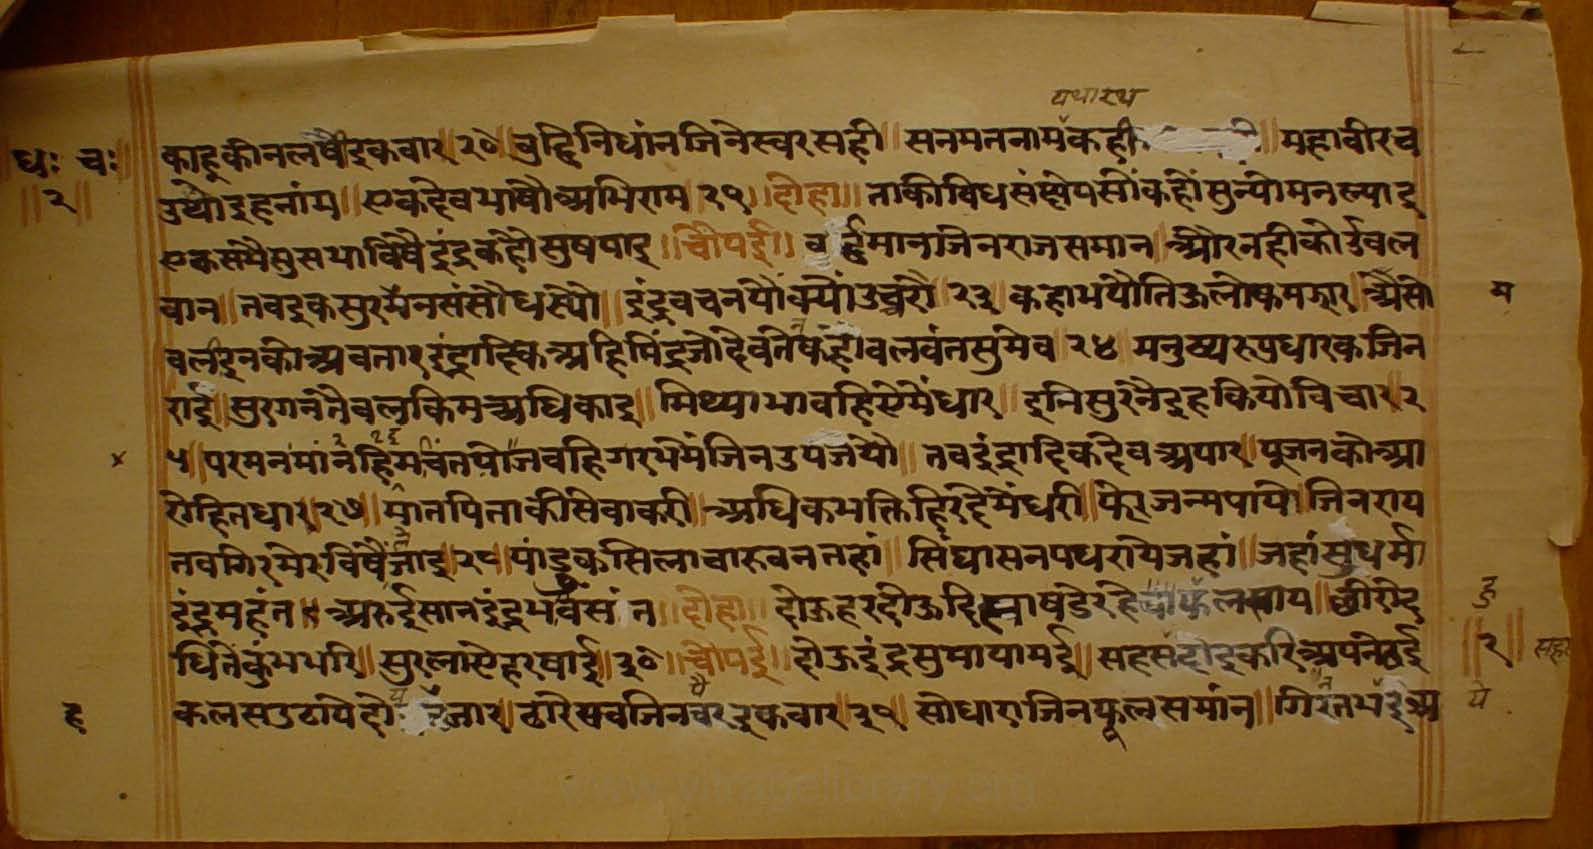 यथारथ
धः चः काहूकीनलषौइकवार॥२०॥बुद्धिनिधांनजिनेस्वरसही॥सनमतनामकही ॥महावीरच
॥२॥ उथोइहनांम॥एकहेवभाषौअभिराम॥२१॥दोहा॥ताकीविधसंछेपसौंकहोंसुन्योमनल्याइ
एकसंमैसुसभाविषैइंद्रकहौसुषपाइ॥चौपई॥वर्द्धमानजिनराजसमान॥औरनहीकोईवल
वान॥तवइकसुरमैनसंसौधस्यौ॥इंद्रवचनयौंक्यौंउच्चरौ॥२३॥कहाभयौतिऊलोकमझार॥ऐसो म
वलइनकीअवतार॥इंद्रादिकअहिमिंद्रजोहेव कहोवलवंतसुमेव॥२४॥मनुष्यरूपधारकजिन
राई॥सुरगनतैंवलकिमअधिकाइ॥मिथ्याभावहिएमेंधार॥इनिसुरनैइहकियोविचार॥२
५॥परमनमां जवहिगरभमेंजिनउपजयो॥तवइंद्रादिकहेवअपार॥पूजनकोआ
रोहितधार॥२७॥मातपिताकीसेवाकरी॥अधिकभक्तिहिरहेमेंधरी॥फेरजन्मपायो।जिनराय
तवगिरमेरविषैंजाइ॥२८॥पांडुकसिलावारुवनतहां॥सिंघासनपधरायेजहां॥जहांसुधर्मा
इंद्रमहंत॥अरुईसानइंद्र ॥दोहा॥दोऊहरदोऊदिसाषडेरहे ॥छीरोद
धितेंकुंभभरि॥सुरलाऐहरषाई॥३०॥चौपई॥दोऊइंद्रसुमायामई॥सहसदोइकरिअपनेठई ॥२॥
ह कलसउठायेदो जार॥ढारेसवजिनवरइकवार॥३१॥सोधाराजिनफूलसमांन॥गिर
ये